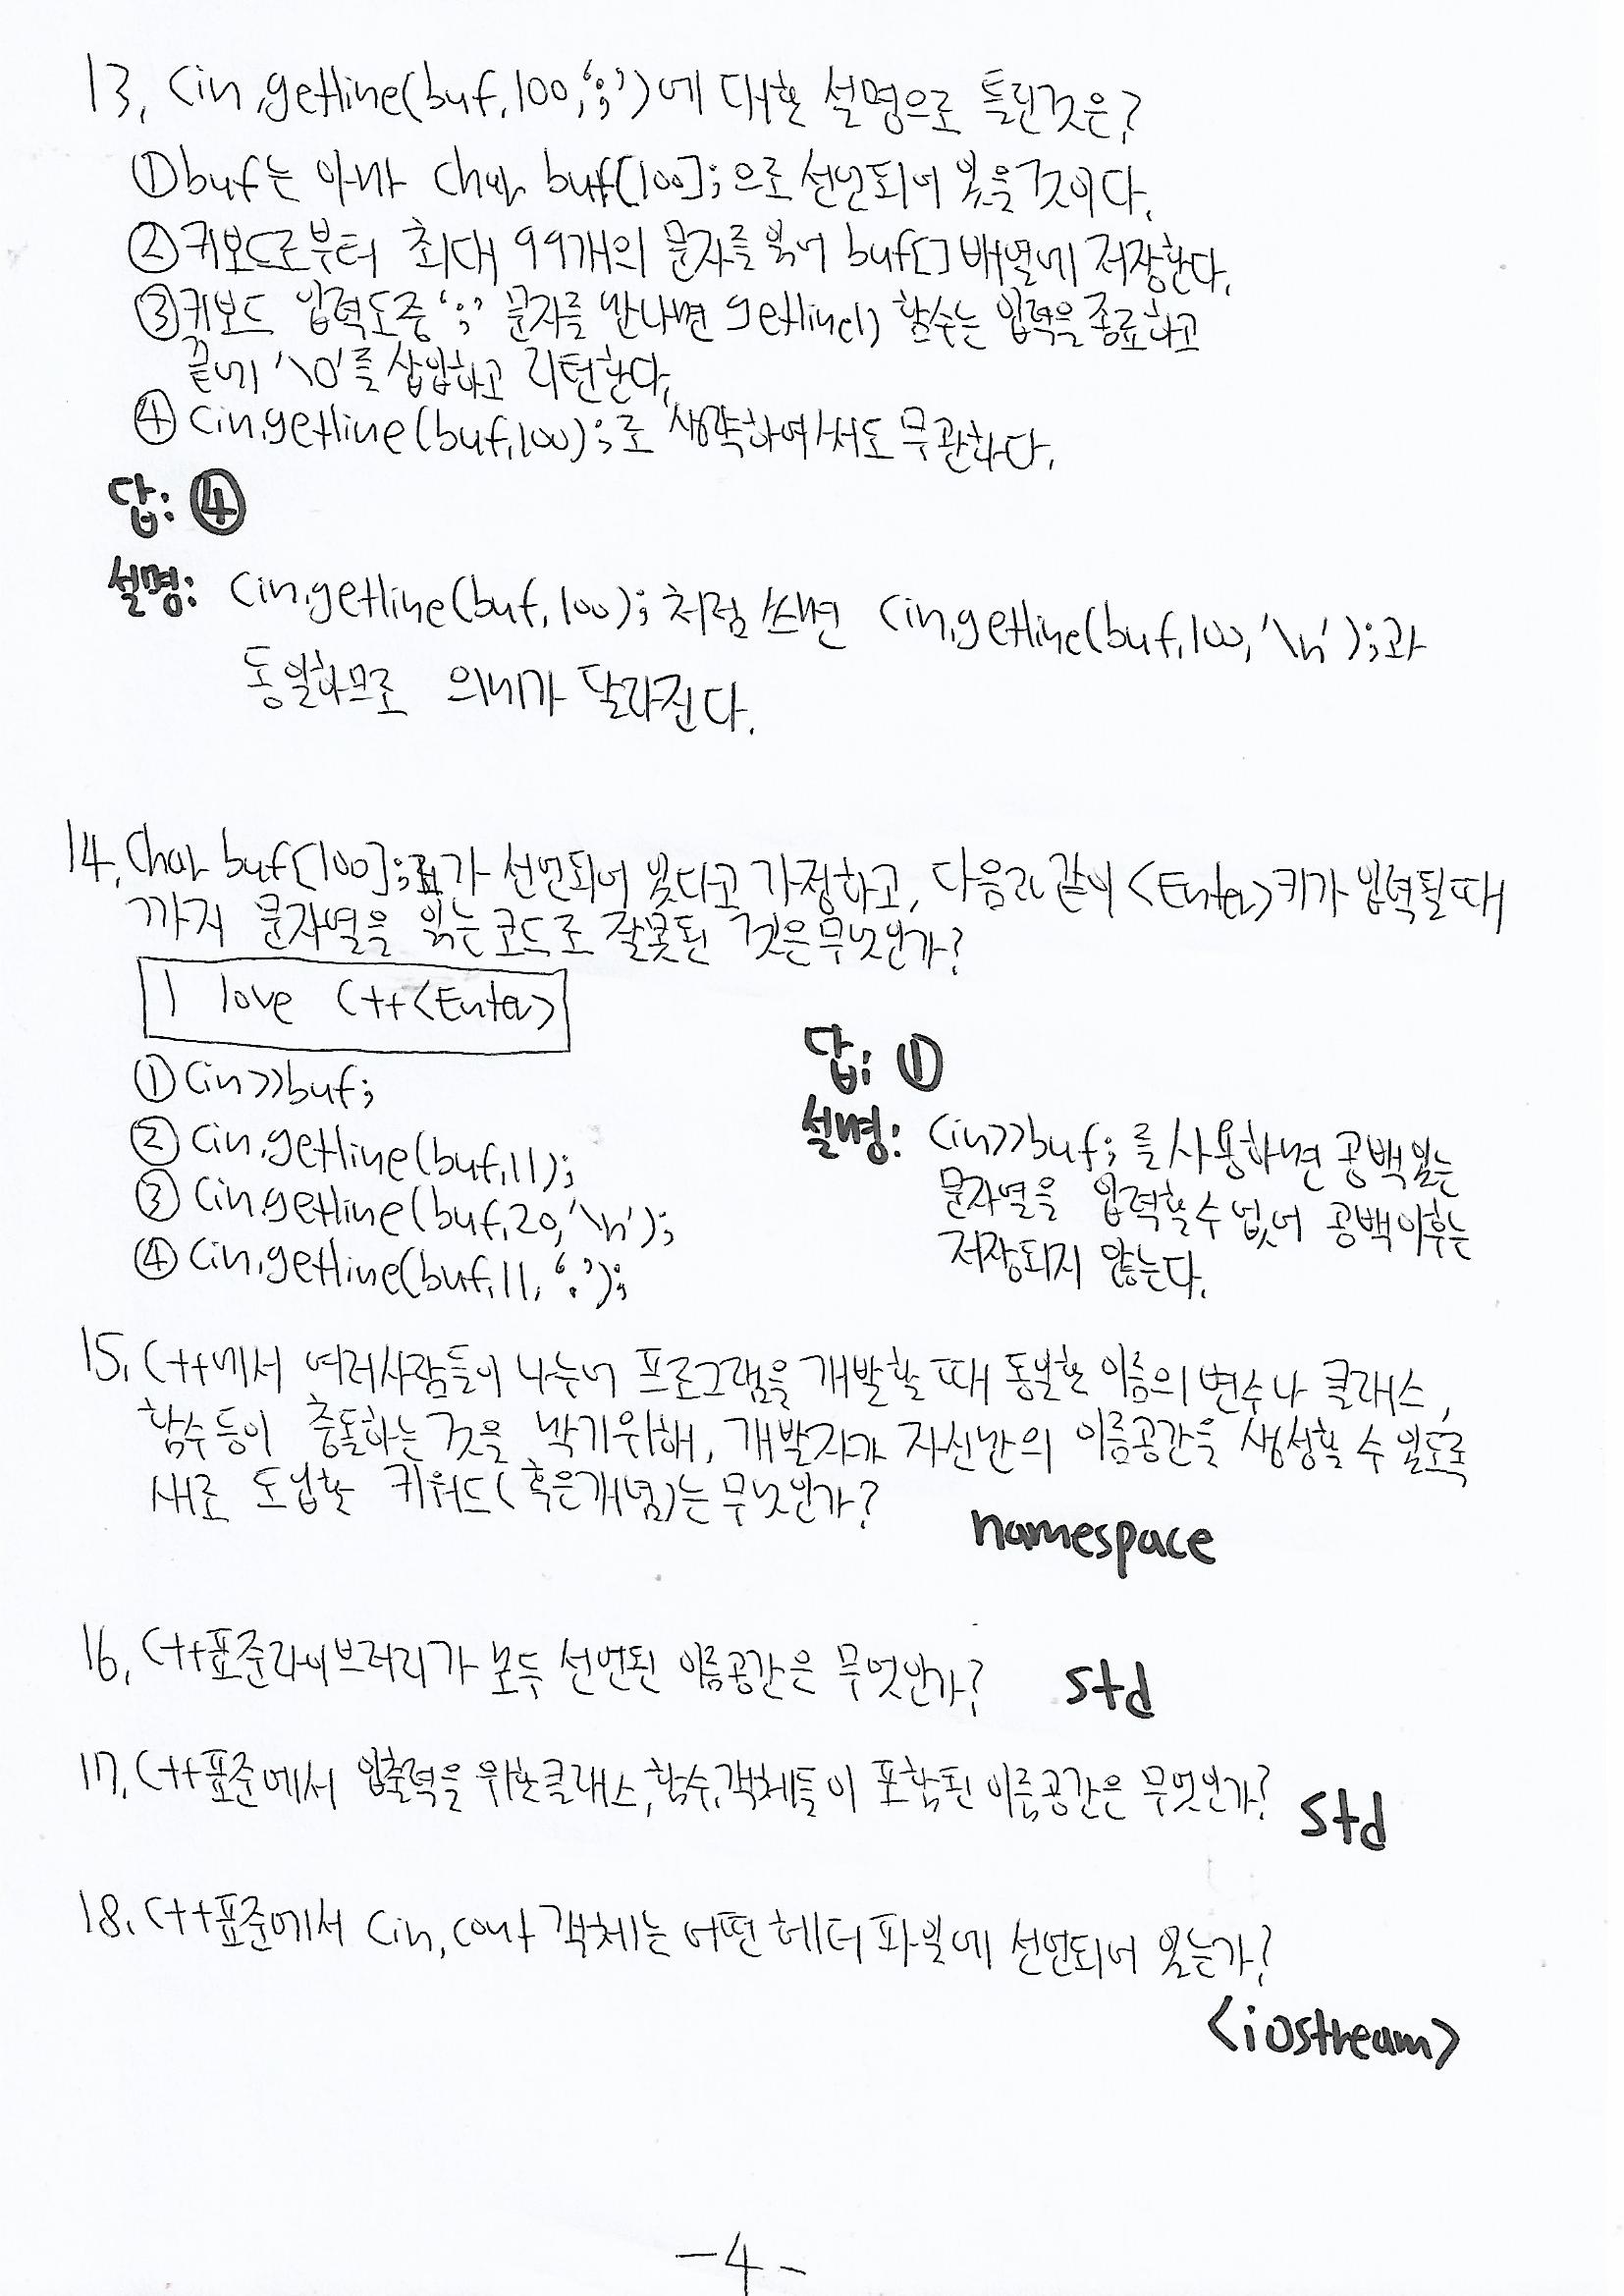 13. cin.getline(buf,100,';')에 대한 설명으로 틀린것은?
①buf는 아마 char buf[100];으로 선언되어 있을것이다.
②키보드로부터 최대 99개의 문자를 읽어 buf[]배열에 저장한다.
③키보드 입력도중 ';' 문자를 만나면 getline() 함수는 입력을 종료하고
끝에 '\0'를 삽입하고 리턴한다.
④cin.getline(buf,100);로 생략하여서도 무관하다.
답: ④
설명: cin.getline(buf,100); 처럼 쓰면 cin.getline(buf,100,'\n');과
동일하므로 의미가 달라진다.
14. char buf[100];가 선언되어 있다고 가정하고, 다음과 같이 <Enter>키가 입력될때
까지 문자열을 읽는 코드로 잘못된 것은무엇인가?
I love C++<Enter>
①cin>>buf;
②cin.getline(buf,11);
③cin.getline(buf,20,'\n');
④cin.getline(buf,11,'.');
답: ①
설명: cin>>buf; 를 사용하면 공백있는
문자열을 입력할수 없어 공백이후는
저장되지 않는다.
15. C++에서 여러사람들이 나누어 프로그램을 개발할 때 동일한 이름의 변수나 클래스,
함수 등이 충돌하는 것을 막기위해, 개발자가 자신만의 이름공간을 생성할 수 있도록
새로 도입한 키워드(혹은개념)는 무엇인가?
namespace
16. C++표준라이브러리가 모두 선언된 이름공간은 무엇인가? std
17. C++표준에서 입출력을 위한클래스,함수,객체들이 포함된 이름공간은 무엇인가? std
18. C++표준에서 cin,cout 객체는 어떤 헤더 파일에 선언되어 있는가?
<iostream>
-4-